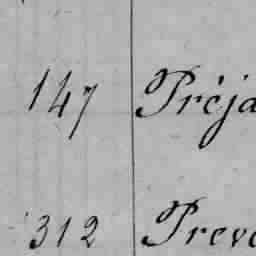 147 Préja
312 Prev